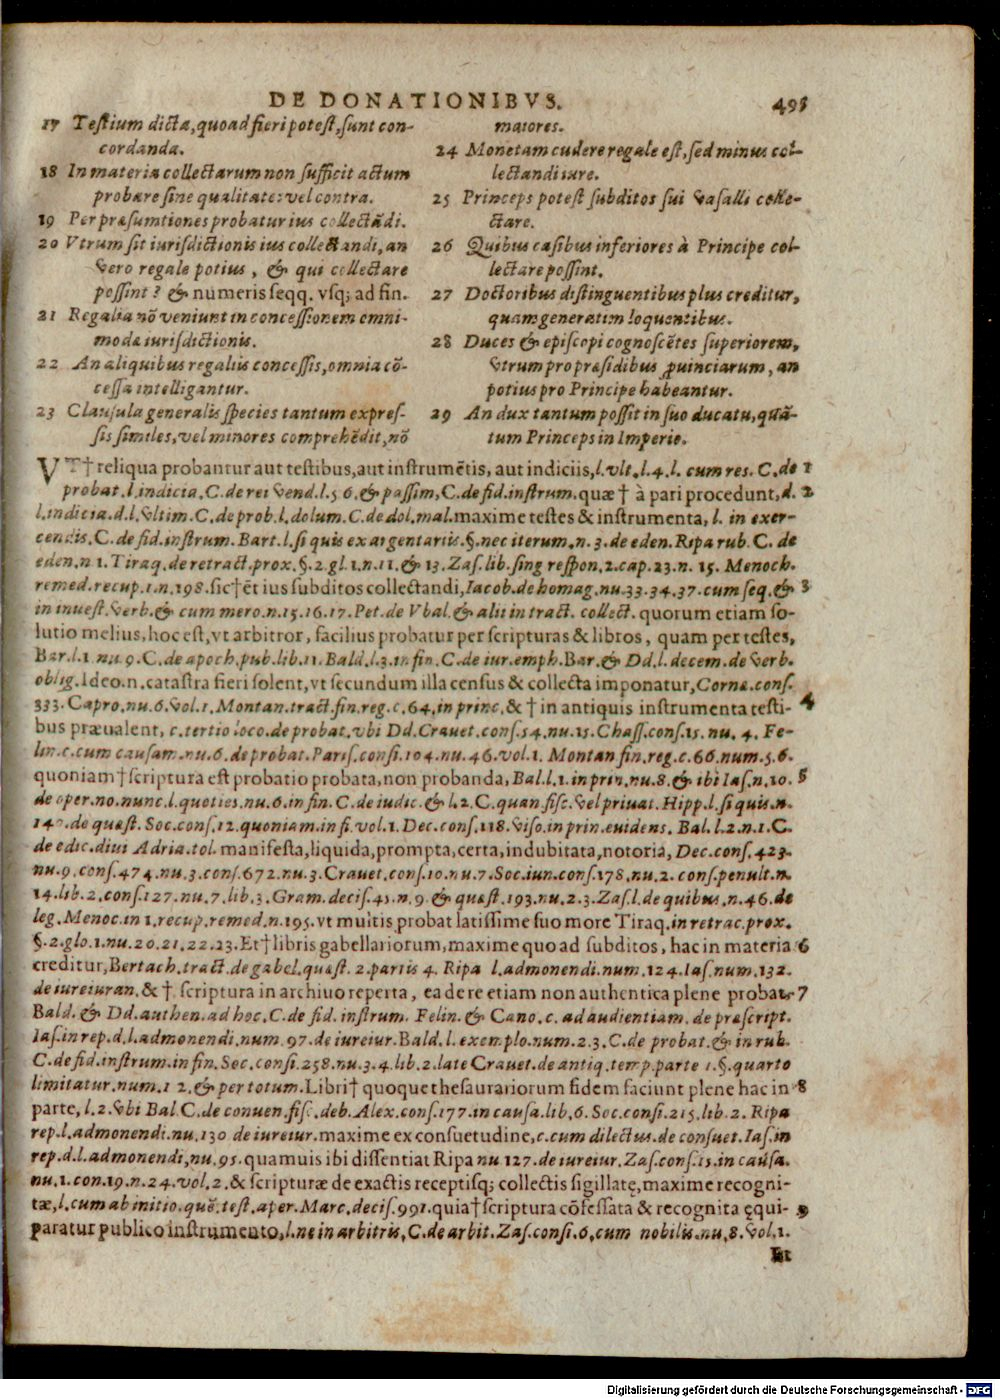 DE DONATIONIBVS. 495
17 Testium dicta, quoad fieri potest, sunt con-
cordanda.
18 In materia collectarum non sufficit actum
probare sine qualitate: vel contra.
19 Per præsumtiones probatur ius collectādi.
20 Vtrum sit iurisdictionis ius collectandi, an
vero regale potius, & qui collectare
possint? & numeris seqq. vsq; ad fin.
21 Regalia nō veniunt in concessionem omni-
moda iurisdictionis.
22 An aliquibus regaliis concessis, omnia cō-
cessa intelligantur.
23 Clausula generalis species tantum expres-
sis similes, vel minores comprehēdit, nō
maiores.
24 Monetam cudere regale est, sed minus col-
lectandi iure.
25 Princeps potest subditos sui vasalli colle-
ctare.
26 Quibus casibus inferiores à Principe col-
lectare possint.
27 Doctoribus distinguentibus plus creditur,
quam generatim loquentibus.
28 Duces & episcopi cognoscētes superiorem,
vtrum pro præsidibus puinciarum, an
potius pro Principe habeantur.
29 An dux tantum possit in suo ducatu, quā-
tum Princeps in Imperio.
VT† reliqua probantur aut testibus, aut instrumētis, aut indiciis, l. vlt. l. 4. l. cum res. C. de 1
probat. l. indicia. C. de rei vend. l. 5. 6. & passim, C. de fid. instrum. quæ † à pari procedunt, d. 2
l. indicia. d. l. vltim. C. de prob. l. dolum. C. de dol. mal. maxime testes & instrumenta, l. in exer-
cendis, C. de fid. instrum. Bart. l. si quis ex argentariis. §. nec iterum. n. 3. de eden. Ripa rub. C. de
eden. n 1. Tiraq. de retract. prox. §. 2. gl. 1. n. 11. & 13. Zas. lib. sing respon. 2. cap. 23. n. 15. Menoch.
remed. recup. 1. n. 198. sic † ēt ius subditos collectandi, Iacob. de homag. nu. 33. 34. 37. cum seq. & 3
in inuest. verb. & cum mero. n. 15. 16. 17. Pet. de Vbal. & alii in tract. collect. quorum etiam so-
lutio melius, hoc est, vt arbitror, facilius probatur per scripturas & libros, quam per testes,
Bar. l. 1. nu. 9. C. de apoch. pub. lib. 11. Bald. l. 3. in fin. C. de iur. emph. Bar. & Dd. l. decem. de verb.
oblig. Ideo. n. catastra fieri solent, vt secundum illa census & collecta imponatur, Corne. cons.
333. Capro. nu. 6. vol. 1. Montan. tract. fin. reg. c. 64. in princ. & † in antiquis instrumenta testi- 4
bus præualent, c. tertio loco. de probat. vbi Dd. Crauet. cons. 54. nu. 15. Chass. cons. 15. nu. 4. Fe-
lin. c. cum causam. nu. 6. de probat. Paris. consi. 104. nu. 46. vol. 1. Montan fin. reg. c. 66. num. 5. 6.
quoniam † scriptura est probatio probata, non probanda, Bal. l. 1. in prin. nu. 8. & ibi Ias. n. 10. 5
de oper. no. nunc. l. quoties. nu. 6. in fin. C. de iudic. & l. 2. C. quan. fisc. vel priuat. Hipp. l. si quis. n.
140. de quæst. Soc. cons. 12. quoniam. in fi. vol. 1. Dec. cons. 118. viso. in prin. euidens. Bal. l. 2. n. 1. C.
de edic. diui Adria. tol. manifesta, liquida, prompta, certa, indubitata, notoria, Dec. cons. 423.
nu. 9. cons. 474. nu. 3. cons. 672. nu. 3. Crauet. cons. 10. nu. 7. Soc. iun. cons. 178. nu. 2. cons. penult. n.
14. lib. 2. cons. 127. nu. 7. lib. 3. Gram. decis. 45. n. 9. & quæst. 193. nu. 2. 3. Zas. l. de quibus. n. 46. de
leg. Menoc. in 1. recup. remed. n. 195. vt multis probat latissime suo more Tiraq. in retrac. prox.
§. 2. glo. 1. nu. 20. 21. 22. 23. Et † libris gabellariorum, maxime quo ad subditos, hac in materia 6
creditur, Bertach. tract. de gabel. quæst. 2. partis 4. Ripa l. admonendi. num. 124. Ias. num. 132.
de iureiuran. & †. scriptura in archiuo reperta, ea de re etiam non authentica plene probat. 7
Bald. & Dd. authen. ad hoc. C. de fid. instrum. Felin. & Cano. c. ad audientiam. de præscript.
Ias. in rep. d. l. admonendi. num. 97. de iureiur. Bald. l. exemplo. num. 2. 3. C. de probat. & in rub.
C. de fid. instrum. in fin. Soc. consi. 258. nu. 3. 4. lib. 2. late Crauet. de antiq. temp. parte 1. §. quarto
limitatur. num. 1 2. & per totum. Libri † quoque thesaurariorum fidem faciunt plene hac in 8
parte, l. 2. vbi Bal. C. de conuen. fisc. deb. Alex. cons. 177. in causa. lib. 6. Soc. consi. 215. lib. 2. Ripa
rep. l. admonendi. nu. 130 de iureiur. maxime ex consuetudine, c. cum dilectus. de consuet. Ias. in
rep. d. l. admonendi, nu. 95. quamuis ibi dissentiat Ripa nu 127. de iureiur. Zas. cons. 15. in causa.
nu. 1. con. 19. n. 24. vol. 2. & scripturæ de exactis receptisq; collectis sigillatę, maxime recogni-
tæ, l. cum ab initio. quē. test. aper. Marc. decis. 991. quia † scriptura cōfessata & recognita ęqui- 9
paratur publico instrumento, l. ne in arbitris, C. de arbit. Zas. consi. 6. cum nobilis. nu. 8. vol. 1.
Digitalisierung gefördert durch die Deutsche Forschungsgemeinschaft - DFG